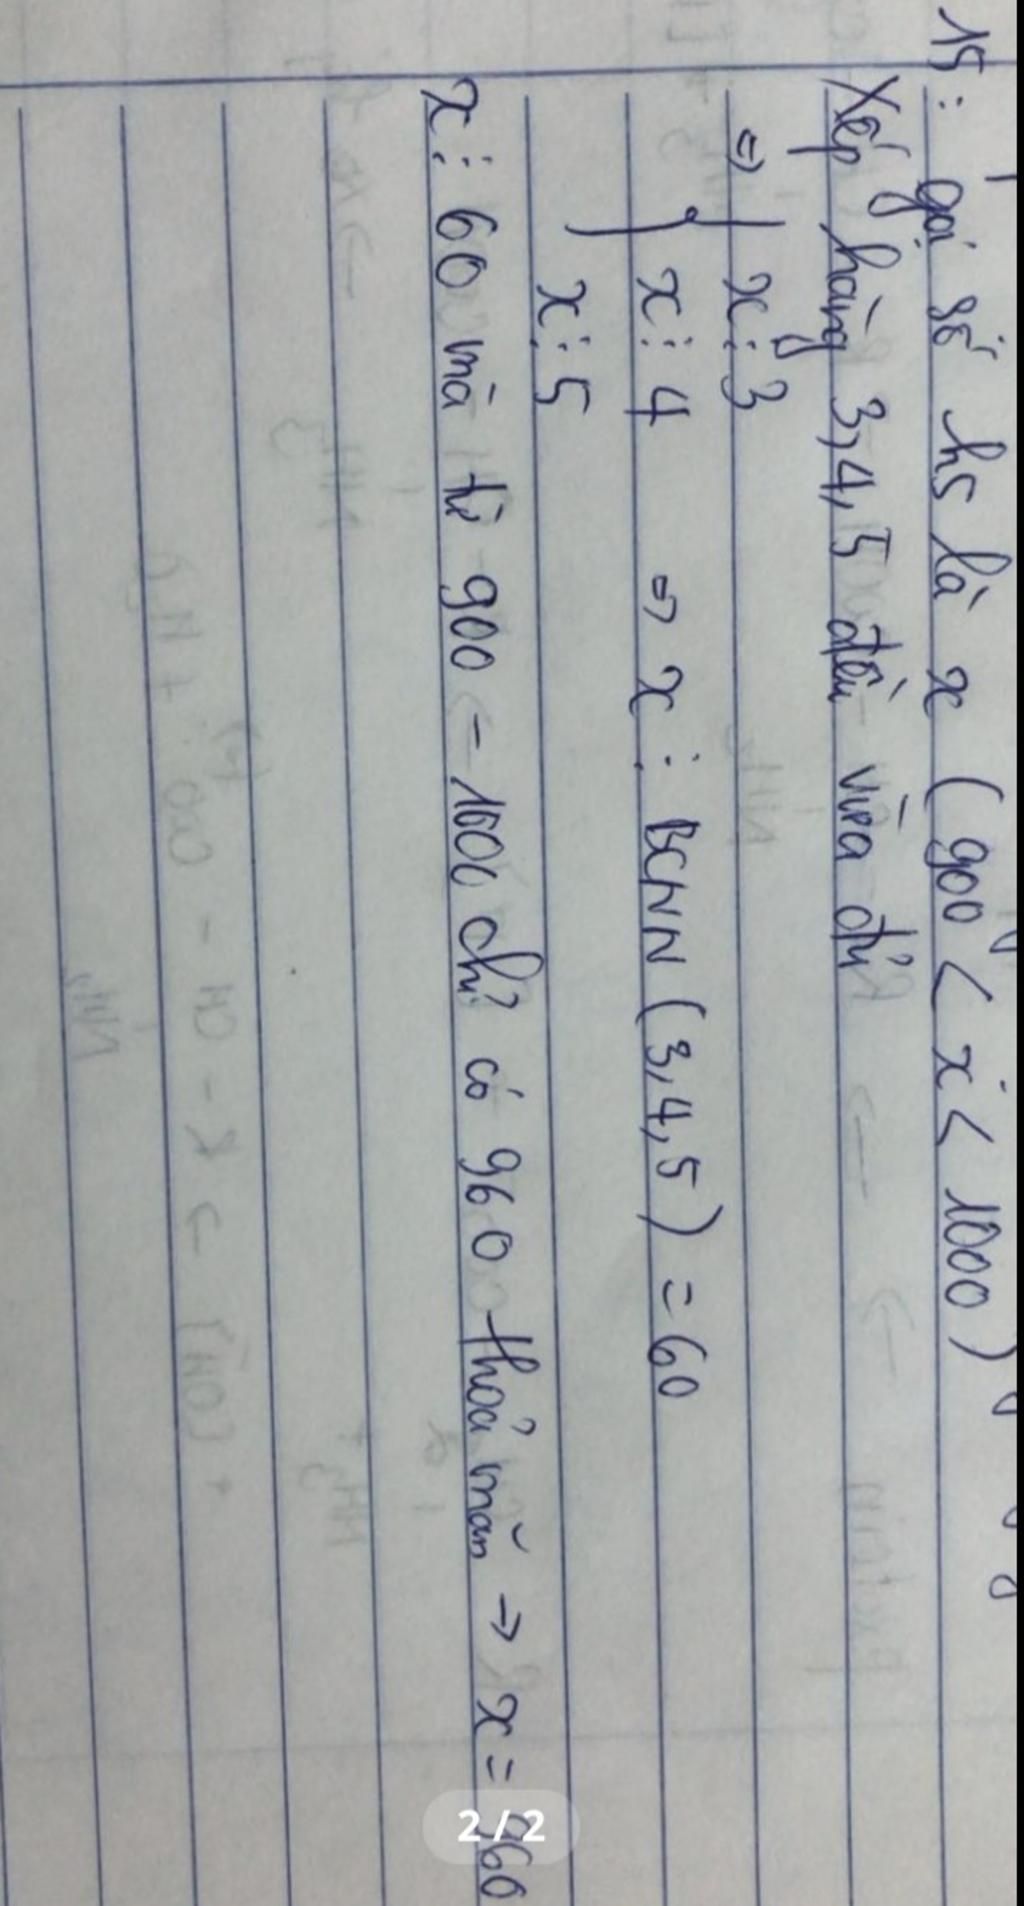 15: gọi số hs là x (900 < x < 1000)
Xếp hàng 3,4,5 đều vừa đủ
=> { x ⋮ 3
x ⋮ 4 => x ⋮ BCNN (3,4,5) = 60
x ⋮ 5
x ⋮ 60 mà từ 900 - 1000 chỉ có 960 thoả mãn → x = 960
2 / 2